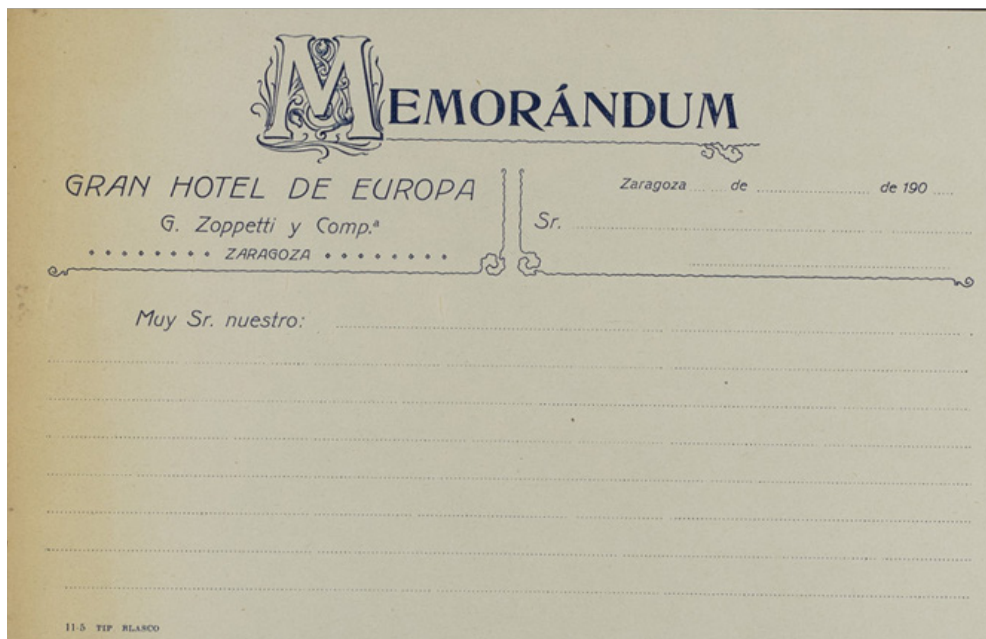 MEMORÁNDUM
GRAN HOTEL DE EUROPA
G. Zoppetti y Comp.ª
ZARAGOZA
Zaragoza de de 190
Sr.
Muy Sr. nuestro:
11-5 TIP BLASCO